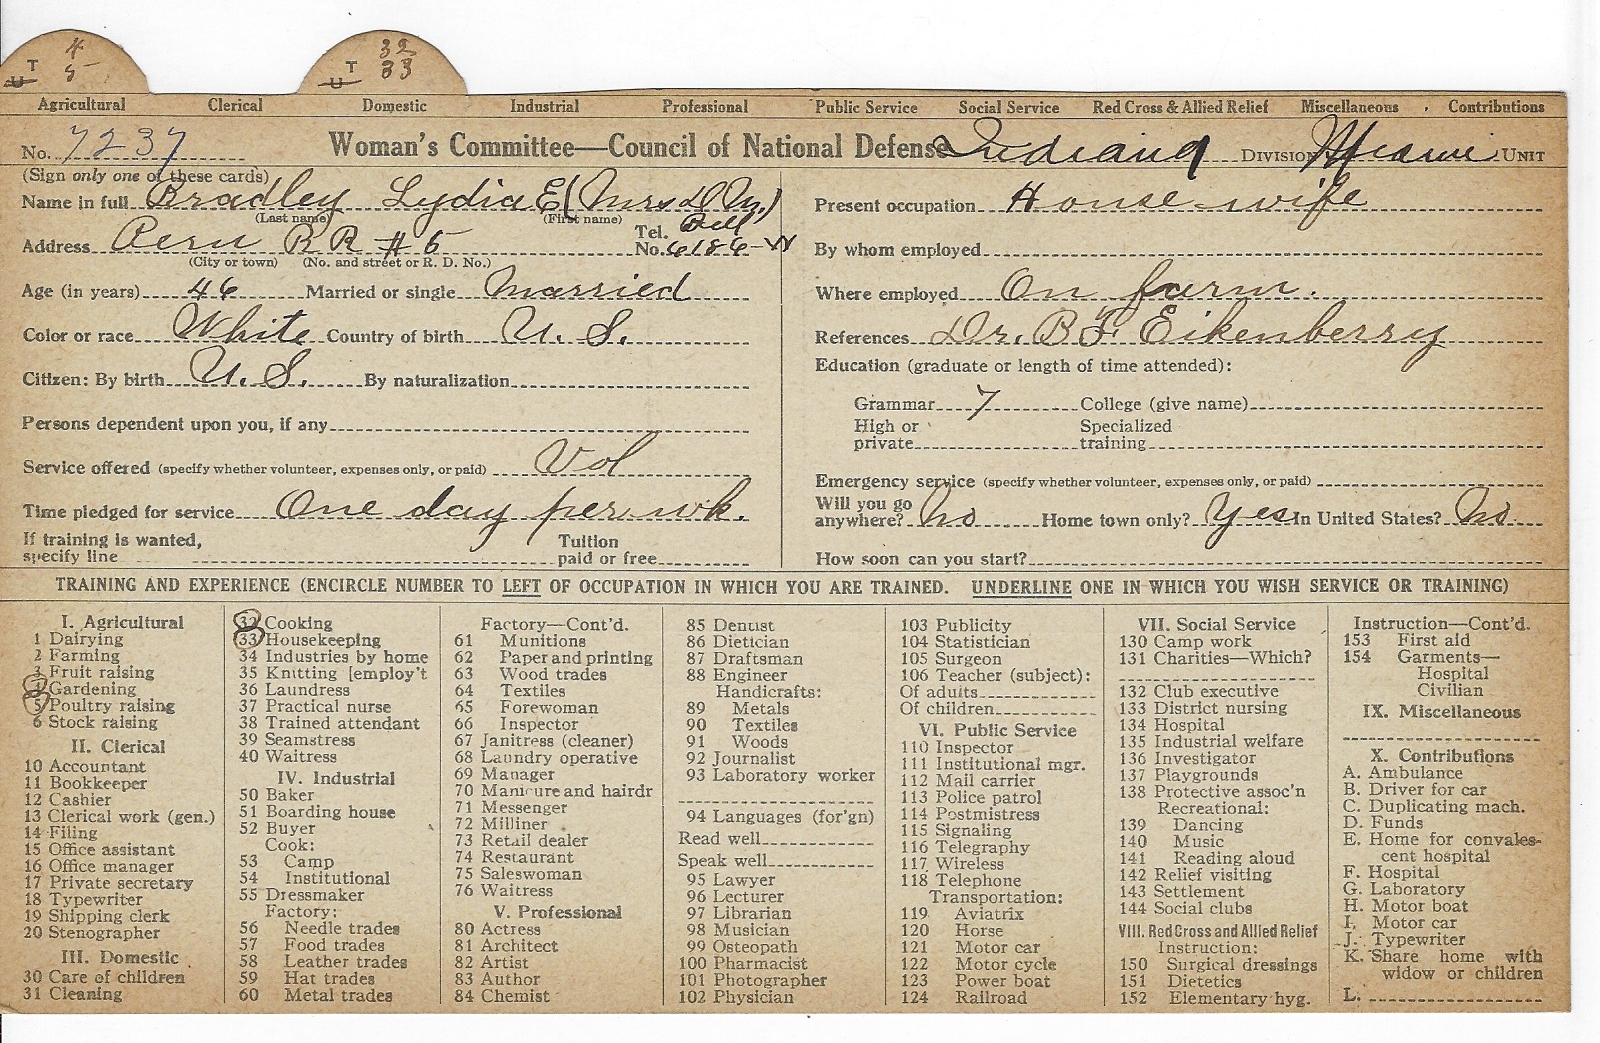 T 4
U 5
T 32
U 33
Agricultural Clerical Domestic Industrial Professional Public Service Social Service Red Cross & Allied Relief Miscellaneous Contributions
No. 7237 Woman's Committee—Council of National Defense Indiana DIVISION Miami UNIT
(Sign only one of these cards)
Name in full Bradley Lydia E (Mrs D M)
(Last name) (First name)
Address Peru R R # 5 Tel. Bell
No. 6186-W
(City or town) (No. and street or R. D. No.)
Age (in years) 46 Married or single Married
Color or race White Country of birth U. S.
Citizen: By birth U. S. By naturalization
Persons dependent upon you, if any
Service offered (specify whether volunteer, expenses only, or paid) Vol
Time pledged for service One day per wk.
If training is wanted,
specify line
Tuition
paid or free
Present occupation House-wife
By whom employed
Where employed On farm.
References Dr. B F Eikenberry
Education (graduate or length of time attended):
Grammar 7 College (give name)
High or
private
Specialized
training
Emergency service (specify whether volunteer, expenses only, or paid)
Will you go
anywhere? No Home town only? Yes In United States? No
How soon can you start?
TRAINING AND EXPERIENCE (ENCIRCLE NUMBER TO LEFT OF OCCUPATION IN WHICH YOU ARE TRAINED. UNDERLINE ONE IN WHICH YOU WISH SERVICE OR TRAINING)
I. Agricultural
1 Dairying
2 Farming
3 Fruit raising
4 Gardening
5 Poultry raising
6 Stock raising
II. Clerical
10 Accountant
11 Bookkeeper
12 Cashier
13 Clerical work (gen.)
14 Filing
15 Office assistant
16 Office manager
17 Private secretary
18 Typewriter
19 Shipping clerk
20 Stenographer
III. Domestic
30 Care of children
31 Cleaning
32 Cooking
33 Housekeeping
34 Industries by home
35 Knitting [employ't
36 Laundress
37 Practical nurse
38 Trained attendant
39 Seamstress
40 Waitress
IV. Industrial
50 Baker
51 Boarding house
52 Buyer
Cook:
53 Camp
54 Institutional
55 Dressmaker
Factory:
56 Needle trades
57 Food trades
58 Leather trades
59 Hat trades
60 Metal trades
Factory—Cont'd.
61 Munitions
62 Paper and printing
63 Wood trades
64 Textiles
65 Forewoman
66 Inspector
67 Janitress (cleaner)
68 Laundry operative
69 Manager
70 Manicure and hairdr
71 Messenger
72 Milliner
73 Retail dealer
74 Restaurant
75 Saleswoman
76 Waitress
V. Professional
80 Actress
81 Architect
82 Artist
83 Author
84 Chemist
85 Dentist
86 Dietician
87 Draftsman
88 Engineer
Handicrafts:
89 Metals
90 Textiles
91 Woods
92 Journalist
93 Laboratory worker
94 Languages (for'gn)
Read well
Speak well
95 Lawyer
96 Lecturer
97 Librarian
98 Musician
99 Osteopath
100 Pharmacist
101 Photographer
102 Physician
103 Publicity
104 Statistician
105 Surgeon
106 Teacher (subject):
Of adults
Of children
VI. Public Service
110 Inspector
111 Institutional mgr.
112 Mail carrier
113 Police patrol
114 Postmistress
115 Signaling
116 Telegraphy
117 Wireless
118 Telephone
Transportation:
119 Aviatrix
120 Horse
121 Motor car
122 Motor cycle
123 Power boat
124 Railroad
VII. Social Service
130 Camp work
131 Charities—Which?
132 Club executive
133 District nursing
134 Hospital
135 Industrial welfare
136 Investigator
137 Playgrounds
138 Protective assoc'n
Recreational:
139 Dancing
140 Music
141 Reading aloud
142 Relief visiting
143 Settlement
144 Social clubs
VIII. Red Cross and Allied Relief
Instruction:
150 Surgical dressings
151 Dietetics
152 Elementary hyg.
Instruction—Cont'd.
153 First aid
154 Garments—
Hospital
Civilian
IX. Miscellaneous
X. Contributions
A. Ambulance
B. Driver for car
C. Duplicating mach.
D. Funds
E. Home for convales-
cent hospital
F. Hospital
G. Laboratory
H. Motor boat
I. Motor car
J. Typewriter
K. Share home with
widow or children
L.